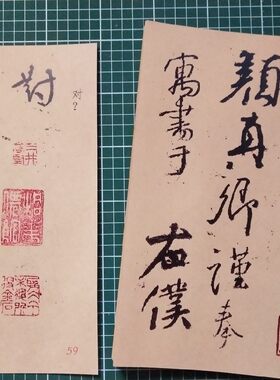 對
对?
59
顏真卿謹奉
寓書于
右僕